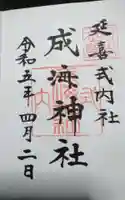 延喜式内社
成海神社
令和五年四月二日